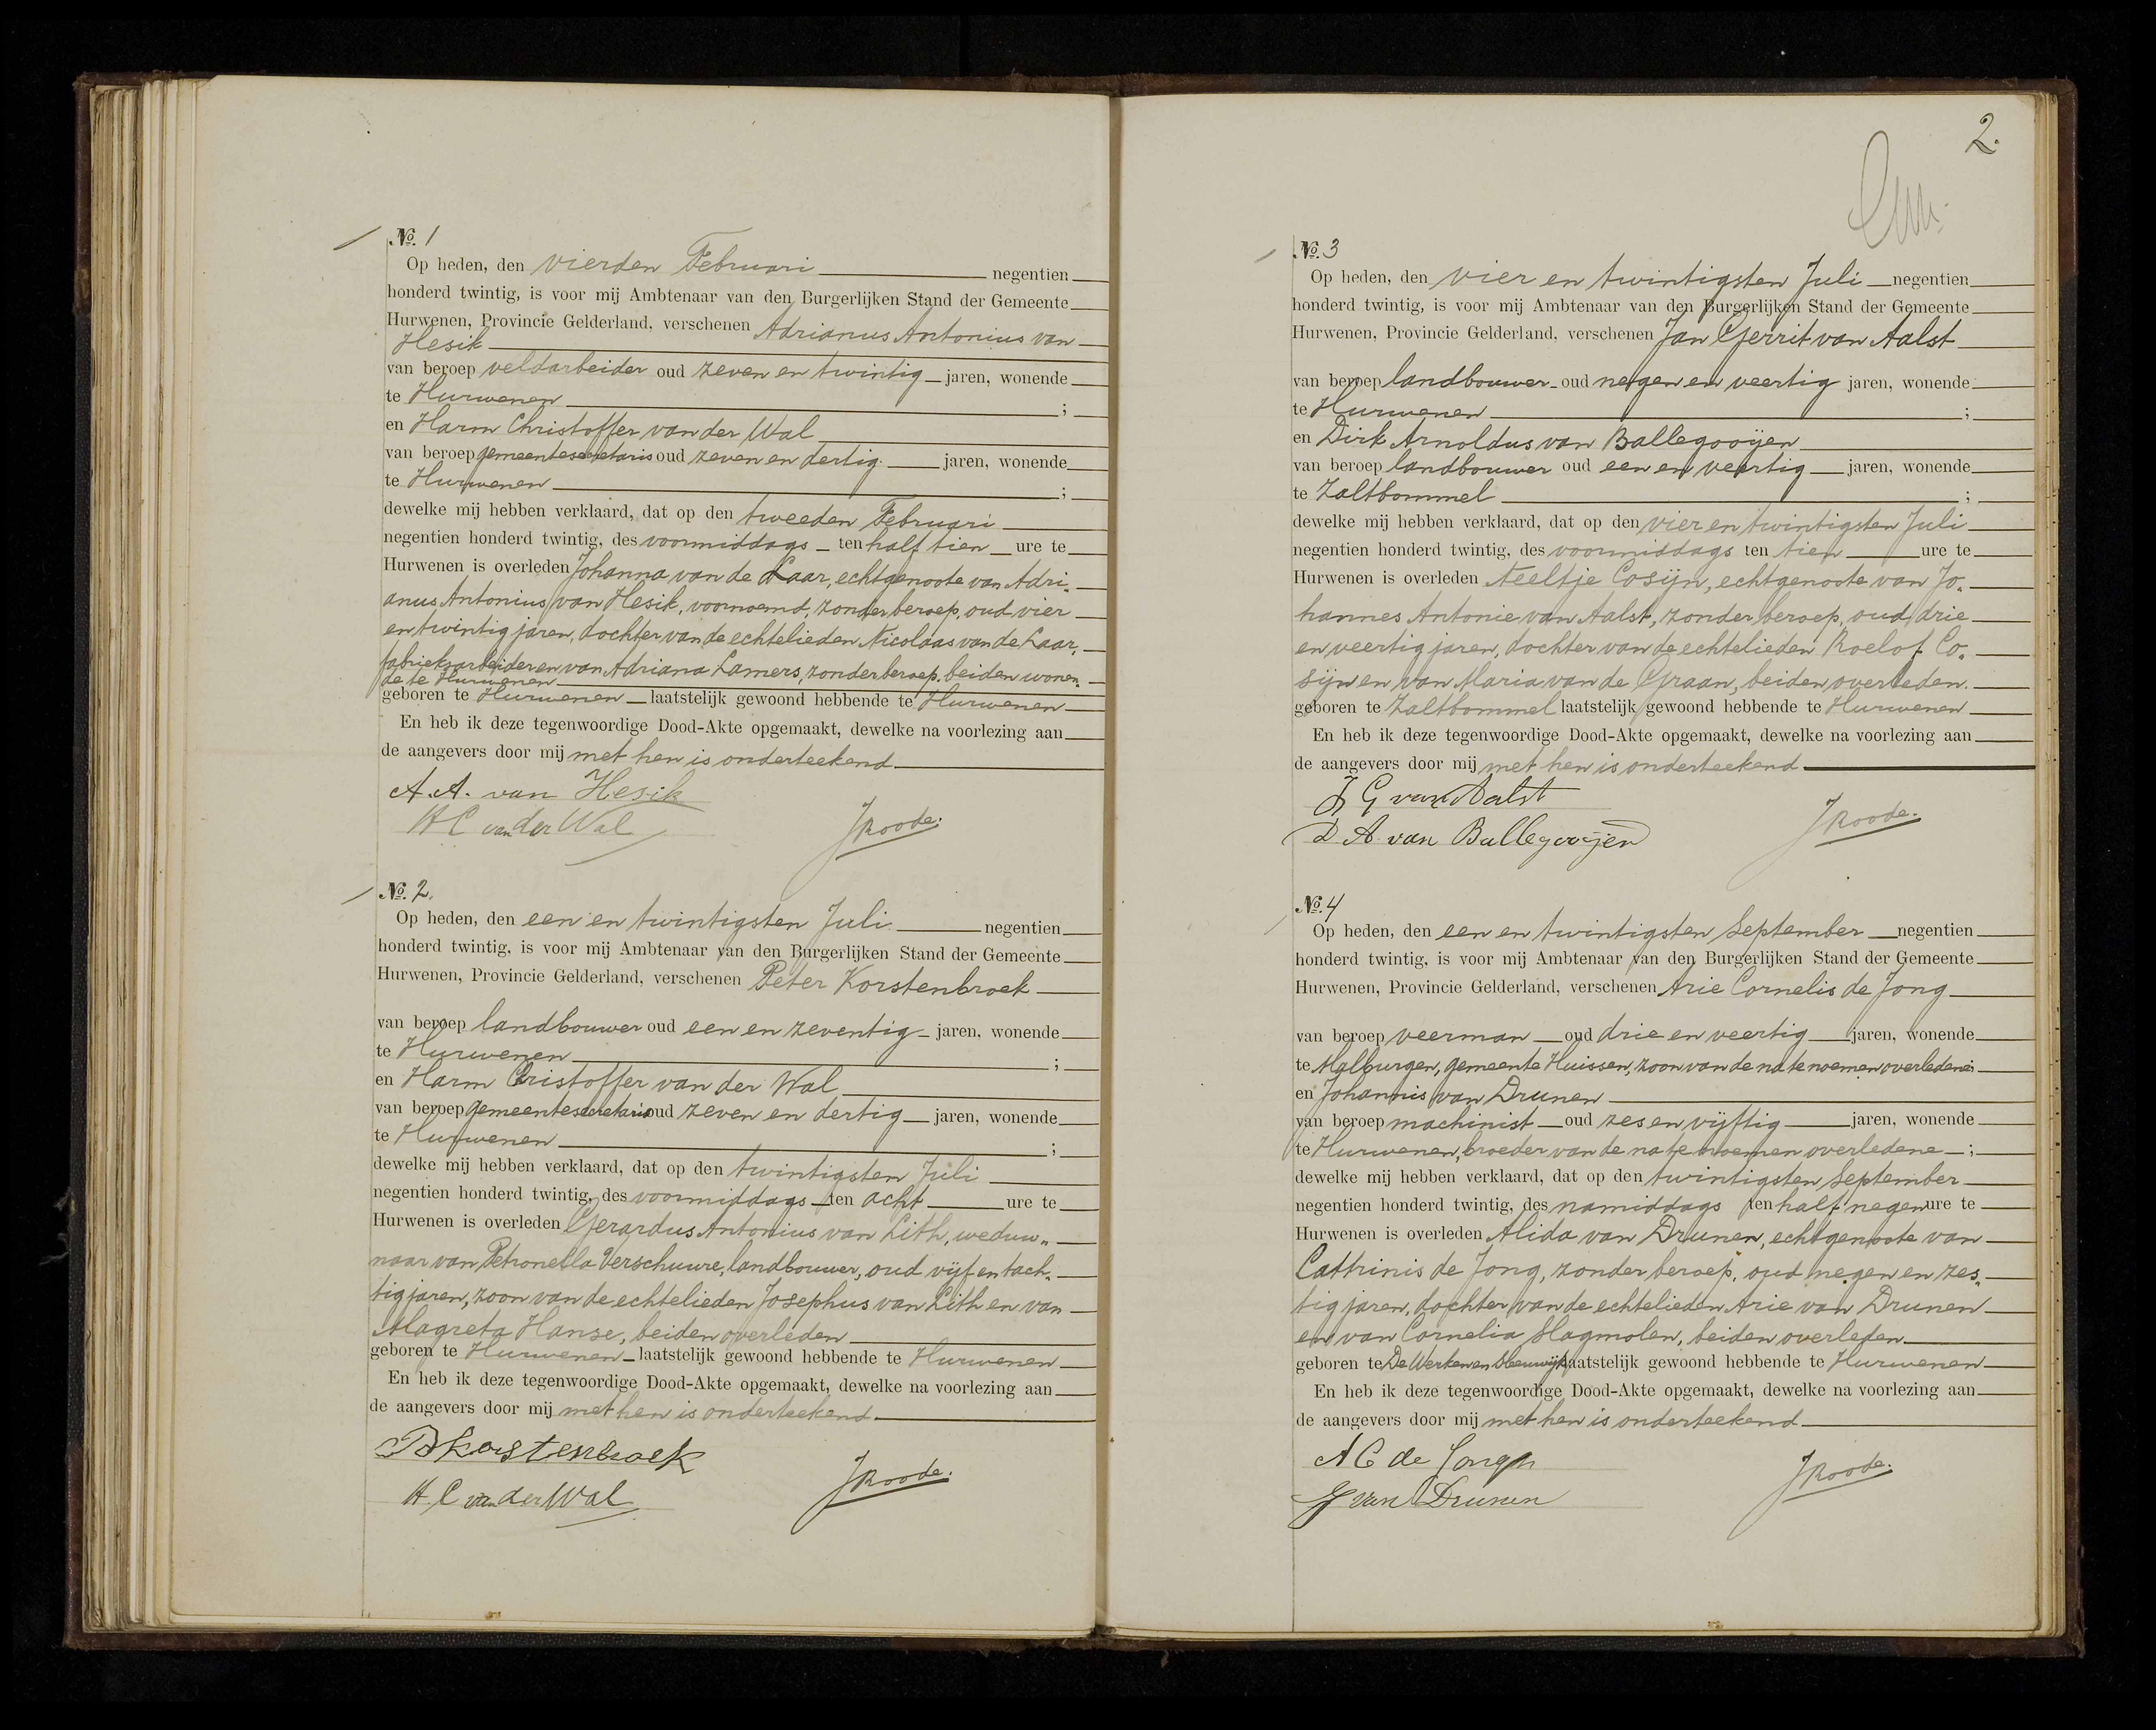 No. 1
Op heden, den vierden Februari negentien
honderd twintig, is voor mij Ambtenaar van den Burgerlijken Stand der Gemeente
Hurwenen, Provincie Gelderland, verschenen Adrianus Antonius van
Hesik
van beroep veldarbeider oud zeven en twintig jaren, wonende
te Hurwenen ;
en Harm Christoffer van der Wal
van beroep gemeentesecretaris oud zeven en dertig jaren, wonende
te Hurwenen ;
dewelke mij hebben verklaard, dat op den tweeden Februari
negentien honderd twintig, des voormiddags ten half tien ure te
Hurwenen is overleden Johanna van de Laar, echtgenoote van Adri-
anus Antonius van Hesik, voornoemd, zonder beroep, oud vier
en twintig jaren, dochter van de echtelieden Nicolaas van de Laar,
fabrieksarbeider en van Adriana Lamers, zonder beroep, beiden wonen-
de te Hurwenen
geboren te Hurwenen laatstelijk gewoond hebbende te Hurwenen
En heb ik deze tegenwoordige Dood-Akte opgemaakt, dewelke na voorlezing aan
de aangevers door mij met hen is onderteekend
A. A. van Hesik
H C van der Wal
JRoode.
No. 2.
Op heden, den een en twintigsten Juli negentien
honderd twintig, is voor mij Ambtenaar van den Burgerlijken Stand der Gemeente
Hurwenen, Provincie Gelderland, verschenen Peter Korstenbroek
van beroep landbouwer oud een en zeventig jaren, wonende
te Hurwenen ;
en Harm Christoffer van der Wal
van beroep gemeentesecretaris oud zeven en dertig jaren, wonende
te Hurwenen ;
dewelke mij hebben verklaard, dat op den twintigsten Juli
negentien honderd twintig, des voormiddags ten acht ure te
Hurwenen is overleden Gerardus Antonius van Lith, weduw-
naar van Petronella Verschuure, landbouwer, oud vijf en tach-
tig jaren, zoon van de echtelieden Josephus van Lith en van
Magreta Hanse, beiden overleden
geboren te Hurwenen laatstelijk gewoond hebbende te Hurwenen
En heb ik deze tegenwoordige Dood-Akte opgemaakt, dewelke na voorlezing aan
de aangevers door mij met hen is onderteekend.
P Korstenbroek
H. C van der Wal
JRoode.
2.
No. 3
Op heden, den vier en twintigsten Juli negentien
honderd twintig, is voor mij Ambtenaar van den Burgerlijken Stand der Gemeente
Hurwenen, Provincie Gelderland, verschenen Jan Gerrit van Aalst
van beroep landbouwer oud negen en veertig jaren, wonende
te Hurwenen ;
en Dirk Arnoldus van Ballegooijen
van beroep landbouwer oud een en veertig jaren, wonende
te Zaltbommel ;
dewelke mij hebben verklaard, dat op den vier en twintigsten Juli
negentien honderd twintig, des voormiddags ten tien ure te
Hurwenen is overleden Neeltje Cosijn, echtgenoote van Jo-
hannes Antonie van Aalst, zonder beroep, oud drie
en veertig jaren, dochter van de echtelieden Roelof Co-
sijn en van Maria van de Graan, beiden overleden.
geboren te Zaltbommel laatstelijk gewoond hebbende te Hurwenen
En heb ik deze tegenwoordige Dood-Akte opgemaakt, dewelke na voorlezing aan
de aangevers door mij met hen is onderteekend
J G van Aalst
D A van Ballegooijen
JRoode.
No. 4
Op heden, den een en twintigsten September negentien
honderd twintig, is voor mij Ambtenaar van den Burgerlijken Stand der Gemeente
Hurwenen, Provincie Gelderland, verschenen Arie Cornelis de Jong
van beroep veerman oud drie en veertig jaren, wonende
te Malburgen, gemeente Huissen, zoon van de na te noemen overledene;
en Johannis van Drunen
van beroep machinist oud zes en vijftig jaren, wonende
te Hurwenen, broeder van de na te noemen overledene ;
dewelke mij hebben verklaard, dat op den twintigsten September
negentien honderd twintig, des namiddags ten half negen ure te
Hurwenen is overleden Alida van Drunen, echtgenoote van
Cathrinis de Jong, zonder beroep, oud negen en zes-
tig jaren, dochter van de echtelieden Arie van Drunen
en van Cornelia Slagmolen, beiden overleden.
geboren te De Werken en Sleeuwijk laatstelijk gewoond hebbende te Hurwenen
En heb ik deze tegenwoordige Dood-Akte opgemaakt, dewelke na voorlezing aan
de aangevers door mij met hen is onderteekend
A C de Jongh
J van Drunen
JRoode.